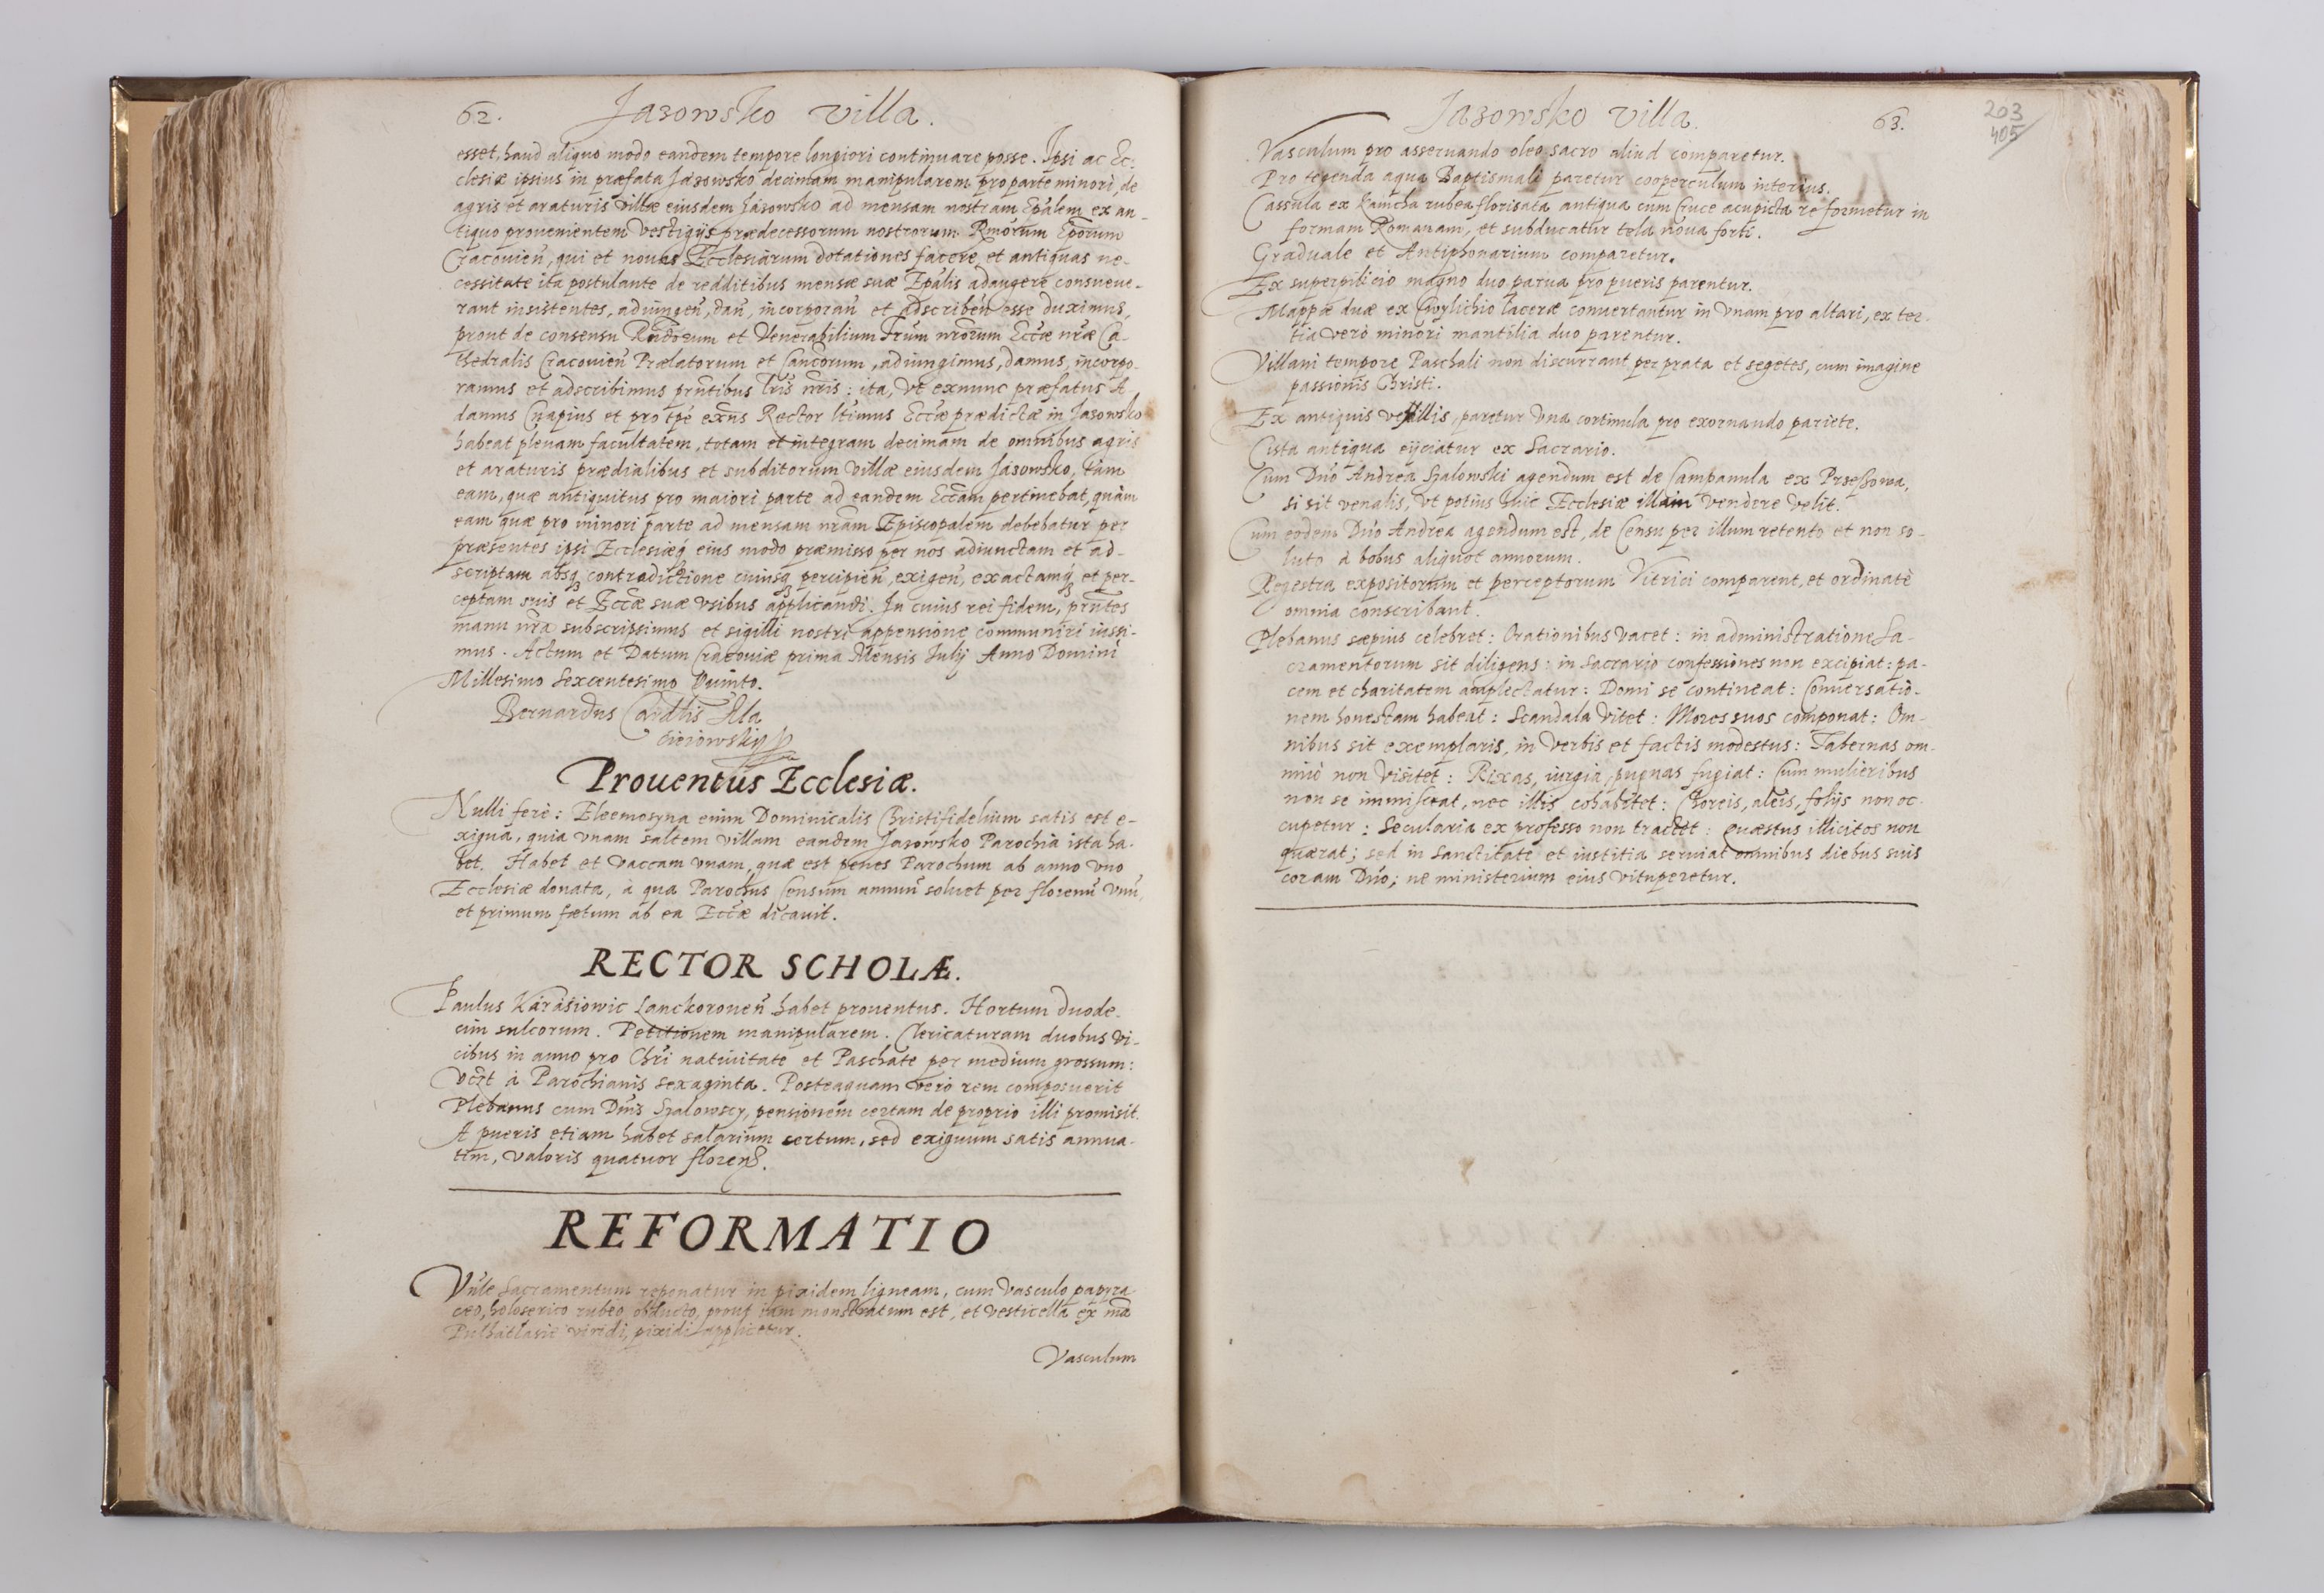 62. Jazowsko villa.
esset, haud aliquo modo eandem tempore longiori continuare posse. Ipsi ac Ec-
clesiæ ipsius in præfata Jazowsko decimam manipularem pro parte minori, de
agris et araturis villæ eiusdem Jazowsko ad mensam nostram Epalem ex an-
tiquo prouenientem vestigijs prædecessorum nostrorum Rmorum Eporum
Cracouien, qui et nouas Ecclesiarum dotationes facere et antiquas ne-
cessitate ita postulante de redditibus mensæ suæ Epalis adaugere consueue-
rant insistentes, adiungen, dan, incorporan et adscriben esse duximus,
prout de consensu Rndorum et Venerabilium Frum nrorum Ecclæ nræ Ca-
thedralis Cracouien Prælatorum et Cancorum, adiungimus, damus, incorpo-
ramus et adscribimus pntibus lris nris: ita, vt exnunc præfatus A
damus Cnapius et pro tpe exns Rector ltimus Eccæ prædictæ in Jazowsko
habeat plenam facultatem, totam et integram decimam de omnibus agris
et araturis prædialibus et subditorum villæ eiusdem Jazowsko, tam
eam, quæ antiquitus pro maiori parte ad eandem Eccam pertinebat, quàm
eam quæ pro minori parte ad mensam nram Episcopalem debebatur per
præsentes ipsi Ecclesiæq eius modo præmisso per nos adiunctam et ad-
scriptam absq contradictione cuiusq percipien, exigen, exactamq et per-
ceptam suis et Eccæ suæ vsibus applicandi. In cuius rei fidem, pntes
manu nra subscripsimus et sigilli nostri appensione communiri iussi-
mus. Actum et Datum Cracouiæ prima Mensis Julij Anno Domini
Millesimo Sexcentesimo Quinto.
Bernardus Cardlis Ma
cieiowsky
Prouentus Ecclesiæ.
Nulli ferè: Eleemosyna enim Dominicalis Christifidelium satis est e-
xigua, quia vnam saltem villam eandem Jazowsko Parochia ista ha-
bet. Habet et vaccam vnam, quæ est penes Parochum ab anno vno
Ecclesiæ donata, à qua Parochus Censum annuu soluet per florenu vnu,
et primum fœtum ab ea Eccæ dicauit.
RECTOR SCHOLÆ.
Paulus Karasiowic Lanckoronen habet prouentus. Hortum duode-
cim sulcorum. Petitionem manipularem. Clericaturam duobus vi-
cibus in anno pro Chri natiuitate et Paschate per medium grossum:
vcꝫt à Parochianis sexaginta. Posteaquam verò rem composuerit
Plebanus cum Dnis Szalowscy, pensionem certam de proprio illi promisit.
A pueris etiam habet salarium certum, sed exiguum satis annua-
tim, valoris quatuor floren.
REFORMATIO
Vnle Sacramentum reponatur in pixidem ligneam, cum vasculo papyra
ceo, holoserico rubeo obducto, prout iam monstratum est, et vesticella ex ma
viridi, pixidi applicetur.
Vasculum
Jazowsko villa. 63.
203
405
Vasculum pro asseruando oleo sacro aliud comparetur.
Pro tegenda aqua Baptismali paretur cooperculum interius.
Cassula ex kamcha rubea florisata antiqua cum Cruce acupicta reformetur in
formam Romanam, et subducatur tela noua forti.
Graduale et Antiphonarium comparetur.
Ex superpilicio magno duo parua pro pueris parentur.
Mappæ duæ ex Cwylichio laceræ conuertantur in vnam pro altari, ex ter-
tia verò minori mantilia duo parentur.
Villani tempore Paschali non discurrant per prata et segetes, cum imagine
passionis Christi.
Ex antiquis vexillis, paretur vna cortinula pro exornando pariete.
Cista antiqua eijciatur ex Sacrario.
Cum Dno Andrea Szalowski agendum est de Campanula ex Przessowa,
si sit venalis, vt potius huic Ecclesiæ illam vendere velit.
Cum eodem Dno Andrea agendum est, de Censu per illum retento et non so-
luto à bobus aliquot annorum.
Regestra expositorum et perceptorum Vitrici comparent, et ordinatè
omnia conscribant.
Plebanus sæpius celebret: Orationibus vacet: in administratione Sa-
cramentorum sit diligens: in Sacrario confessiones non excipiat: pa-
cem et charitatem amplectatur: Domi se contineat: Conuersatio-
nem honestam habeat: Scandala vitet: Mores suos componat: Om-
nibus sit exemplaris, in verbis et factis modestus: Tabernas om-
ninò non visitet: Rixas, iurgia, pugnas fugiat: Cum mulieribus
non se immisceat, nec illis cohabitet: Choreis, aleis, folijs non oc-
cupetur: Secularia ex professo non tractet: Quæstus illicitos non
quærat; sed in sanctitate et iustitia seruiat omnibus diebus suis
coram Dno; ne ministerium eius vituperetur.